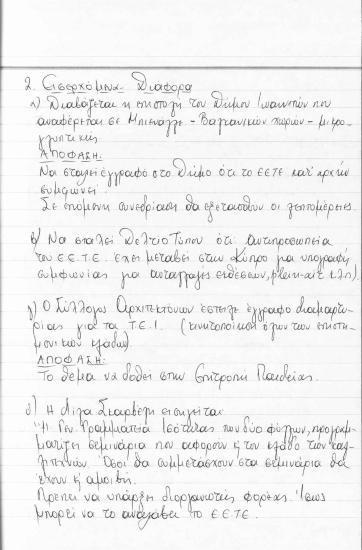 2. Εισερχόμενα - Διάφορα
α) Διαβάζεται η επιστολή του Δήμου Ιωαννιτών που
αναφέρεται σε Μπιενάλλε - Βαλκανικών χωρών - μικρο-
γλυπτικής
ΑΠΟΦΑΣΗ:
Να σταλεί έγγραφο στο Δήμο ότι το ΕΕΤΕ κατ' αρχήν
συμφωνεί.
Σε επόμενη συνεδρίαση θα εξετασθούν οι λεπτομέρειες.
β) Να σταλεί Δελτίο Τύπου ότι αντιπροσωπεία
του Ε.Ε.Τ.Ε. έχει μεταβεί στην Κύπρο για υπογραφή
συμφωνίας για ανταλλαγές εκθέσεων, plein-air κ.λπ.).
γ) Ο Σύλλογος Αρχιτεκτόνων έστειλε έγγραφο διαμαρτυ-
ρίας για τα Τ.Ε.Ι. (κινητοποίηση όλων των επιστη-
μονικών κλάδων).
ΑΠΟΦΑΣΗ:
Το θέμα να δοθεί στην Επιτροπή Παιδείας.
δ) Η Λίζα εισηγείται:
"Η Γεν. Γραμματεία Ισότητας των δύο φύλων, προγραμ-
ματίζει σεμινάρια που αφορούν κ' τον κλάδο των καλ-
λιτεχνών. Όσοι θα συμμετάσχουν στα σεμινάρια θα
έχουν κ' αμοιβή.
Πρέπει να υπάρξει διοργανωτής φορέας. Ίσως
μπορεί να το αναλάβει το Ε.Ε.Τ.Ε.